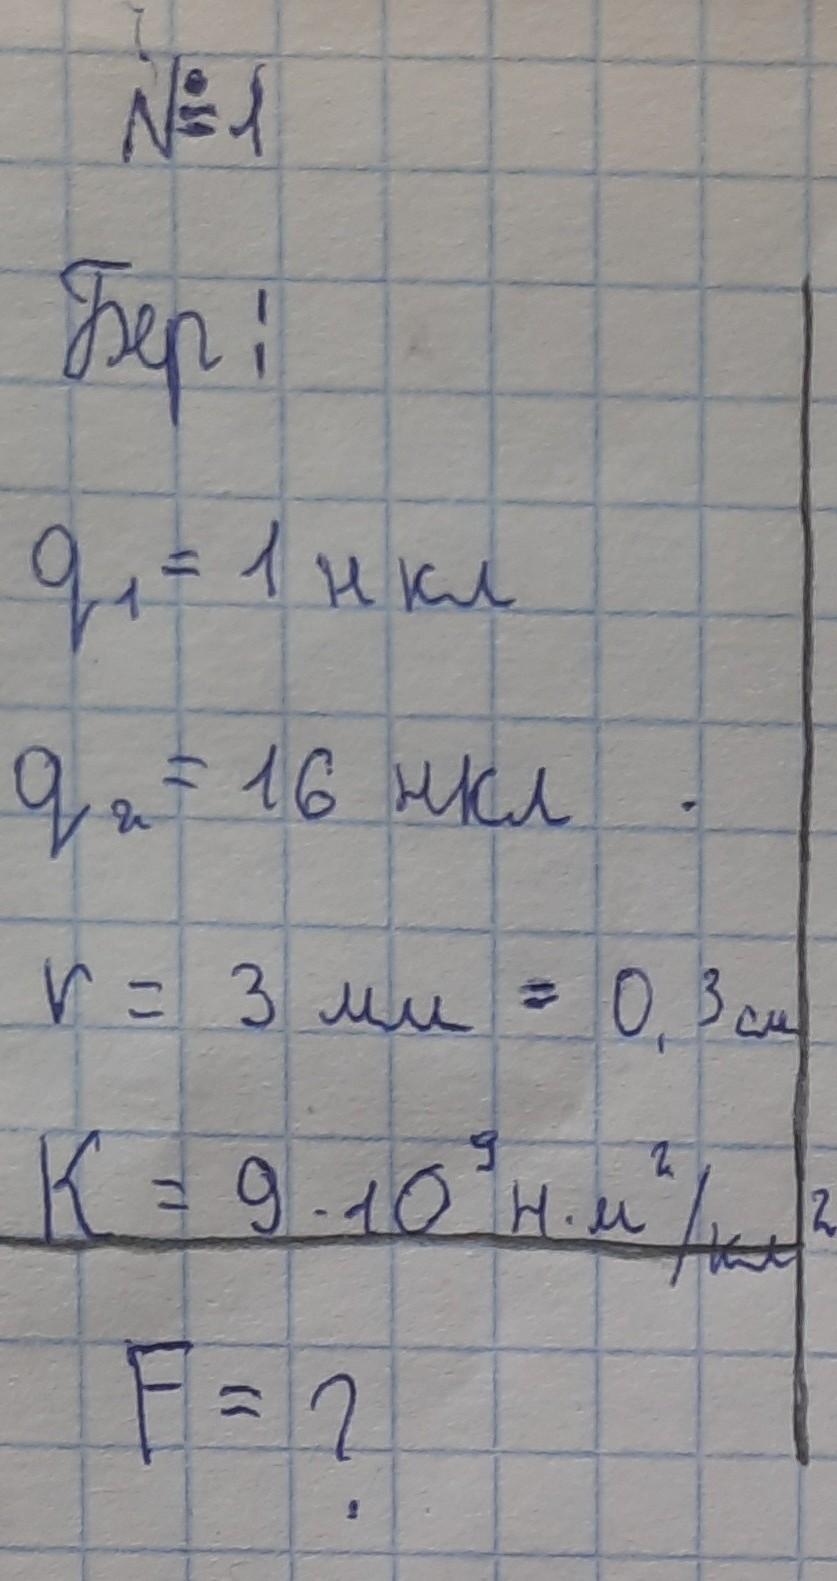 №1
Бер:
q₁ = 1 нкл
q₂ = 16 нкл
r = 3 мм = 0,3 см
K = 9·10⁹ н·м²/кл²
F = ?